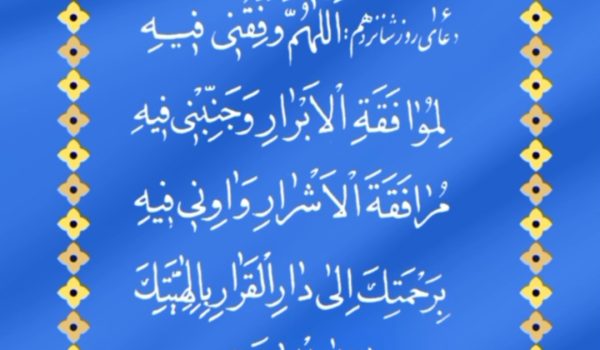 دعای روز شانزدهم: اَللّهُمَّ وَفِّقْنی فیهِ
لِمُوافَقَةِ الْاَبْرارِ وَجَنِّبْنی فیهِ
مُرافَقَةَ الْاَشْرارِ وَاوِنی فیهِ
بِرَحْمَتِكَ اِلی دارِ الْقَرارِ بِاِلهِیَّتِكَ